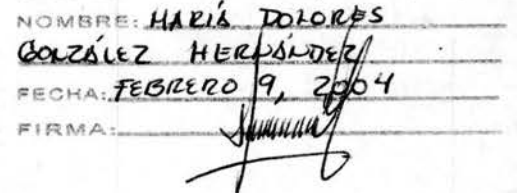 NOMBRE: MARÍA DOLORES
GONZÁLEZ HERNÁNDEZ
FECHA: FEBRERO 9, 2004
FIRMA: